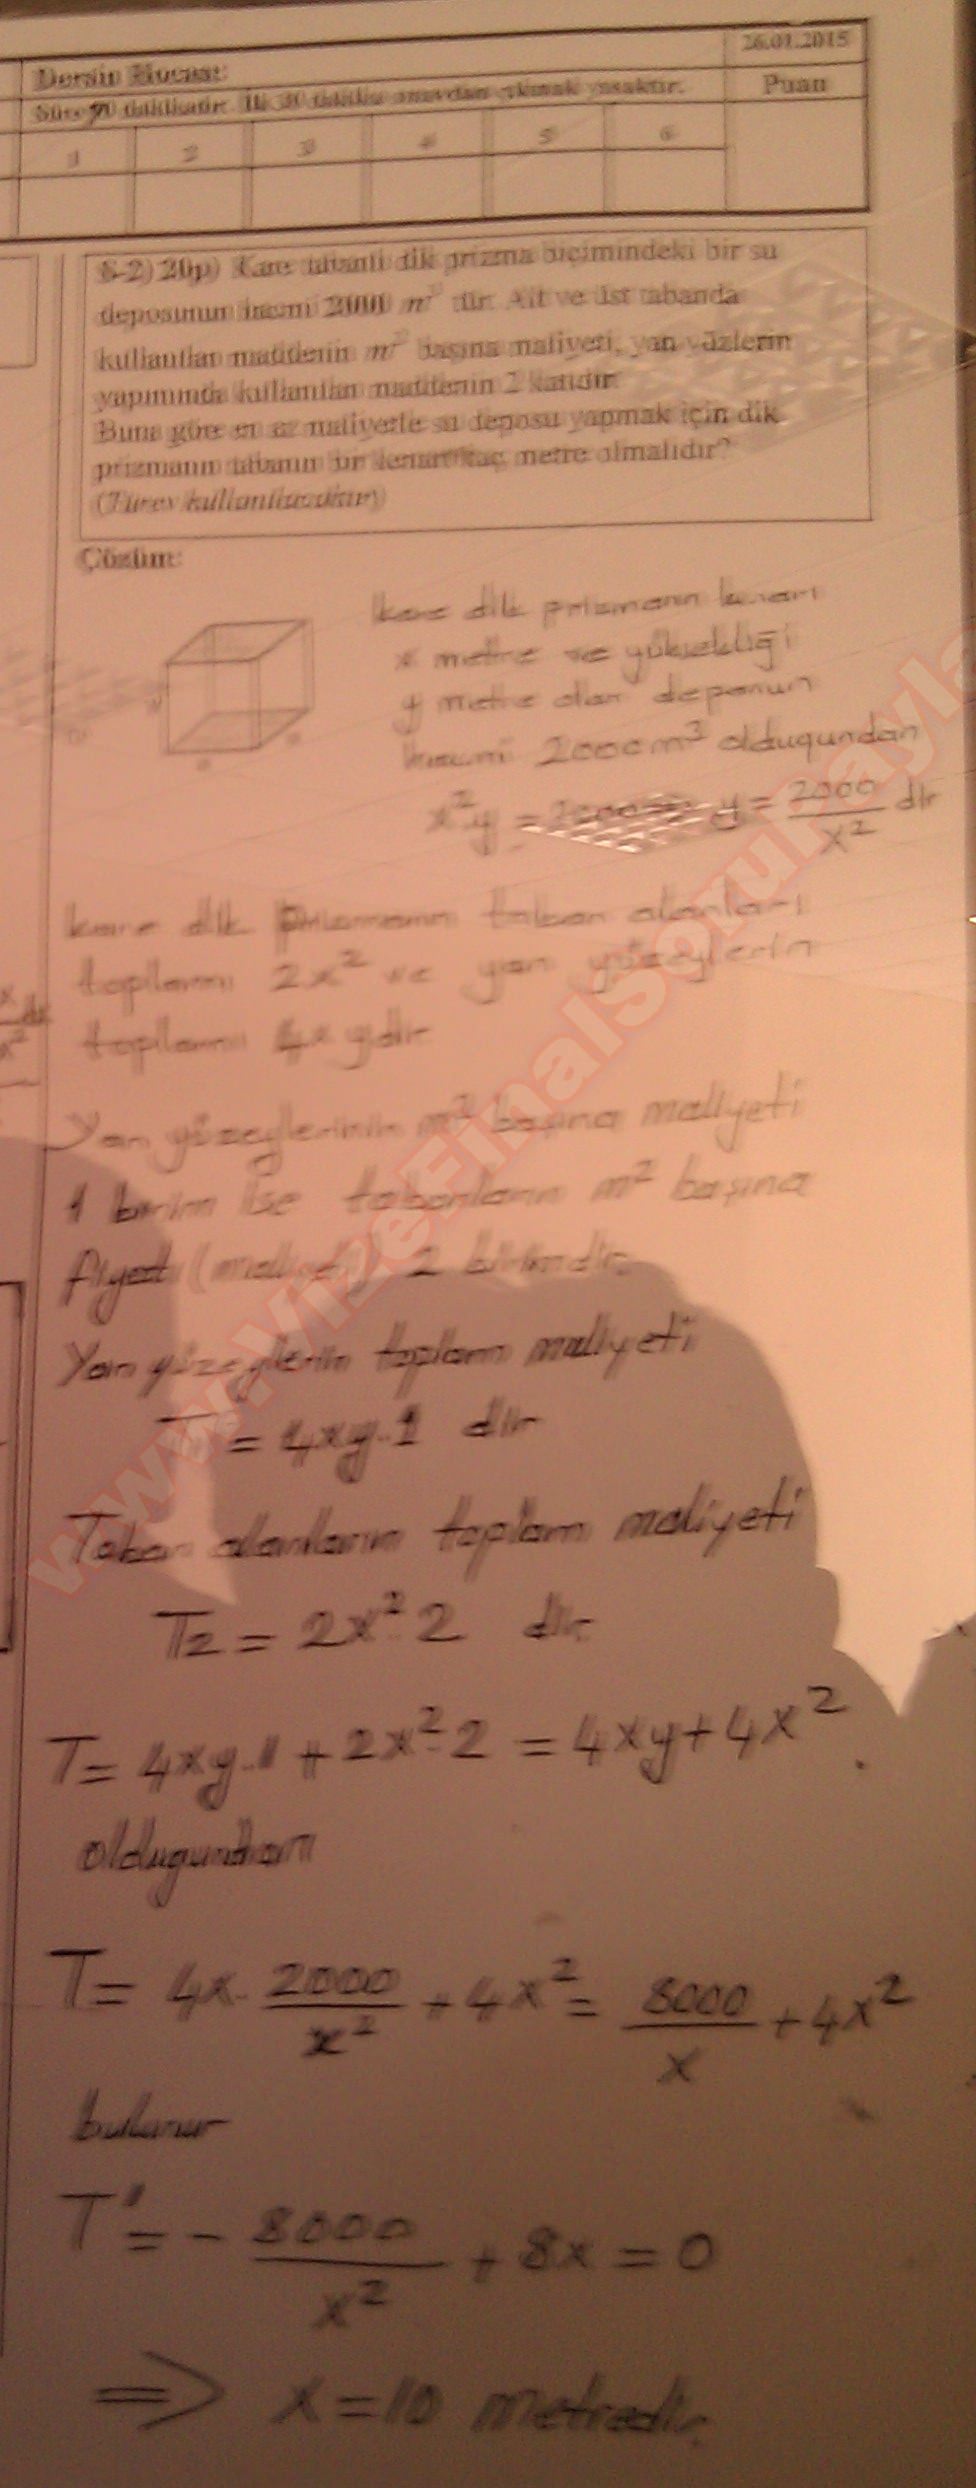 26.01.2015
Dersin Hocası:
Puan
Süre 90 dakikadır. İlk 30 dakika sınavdan çıkmak yasaktır.
1 2 3 4 5 6
S-2) 20p) Kare tabanlı dik prizma biçimindeki bir su
deposunun hacmi 2000 m³ tür. Alt ve üst tabanda
kullanılan maddenin m² başına maliyeti, yan yüzlerin
yapımında kullanılan maddenin 2 katıdır.
Buna göre en az maliyetle su deposu yapmak için dik
prizmanın tabanın bir kenarı kaç metre olmalıdır?
(Türev kullanılacaktır)
Çözüm:
kare dik prizmanın kenarı
x metre ve yüksekliği
y metre olan deponun
hacmi 2000 m³ olduğundan
x²y = 2000 y = 2000/x² dir
kare dik prizmanın taban alanları
toplamı 2x² ve yan yüzeylerin
toplamı 4xy dir
Yan yüzeylerinin m² başına maliyeti
1 birim ise tabanların m² başına
fiyatı (maliyeti) 2 birimdir.
Yan yüzeylerin toplam maliyeti
T₁ = 4xy.1 dir
Taban alanların toplam maliyeti
T2 = 2x².2 dir.
T = 4xy.1 + 2x².2 = 4xy + 4x²
olduğundan
T = 4x. 2000/x² + 4x² = 8000/x + 4x²
bulunur
T' = - 8000/x² + 8x = 0
=> x = 10 metredir.
www.VizeFinalSoruPayla